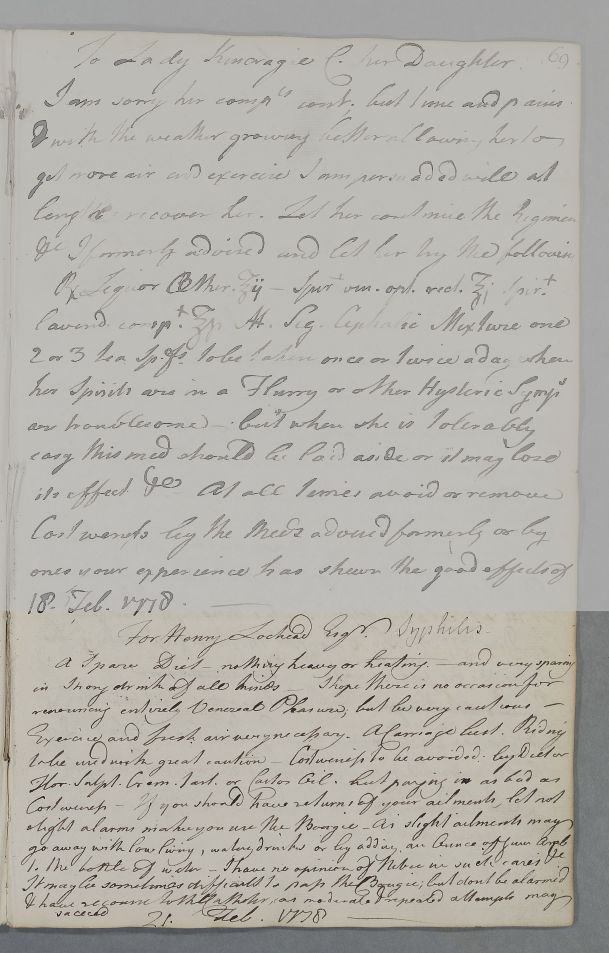 To Lady Kincragie C. her Daughter. 69
I am sorry her comp.ts cont. but time and pains
& with the weather growing better allowing her to
get more air and exercise I am persuaded will at
length recover her. Let her continue the Regimen
&c I formerly advised and let her try the following
Rx Liquor Æther. ʒij – Spir.t vin. opt. rect. ʒj Spir.t
Lavend. comp.t M. Sig. Cephalic Mixture one
2 or 3 tea sp.fs to be taken once or twice a day when
her Spirits are in a Flurry or other Hysteric Symp.s
are troublesome – but when she is tolerably
easy this med should be laid aside or it may lose
its effect &c At all times avoid or remove
Costiveness by the Meds advised formerly or by
ones your experience has shewn the good effects of
18. Feb. 1778.
For Henry Lochead Esq.r Syphilis
A Spare Diet – nothing heavy or heating. – and very sparing
in Strong drink of all kinds I hope there is no occasion for
renouncing entirely Venereal Pleasure, but be very cautious –
Exercise and fresh air very necessary. A Carriage best. Riding
to be used with great caution – Costiveness to be avoided by Diet or
Flor. Sulph. Crem. Tart. or Castor Oil. but purging is as bad as
Costiveness – If you should have returns of your ailments, let not
slight alarms make you use the Bougie – as slight ailments may
go away with low living, watery drinks or by adding an Ounce of Gum Arab
to the bottle of water – I have no opinion of in such cases &c
It may be sometimes difficult to pass the Bougie, but dont be alarmed
& have recourse to the Catheter, as moderate & repeated attempts may
succeed 21. Feb. 1778